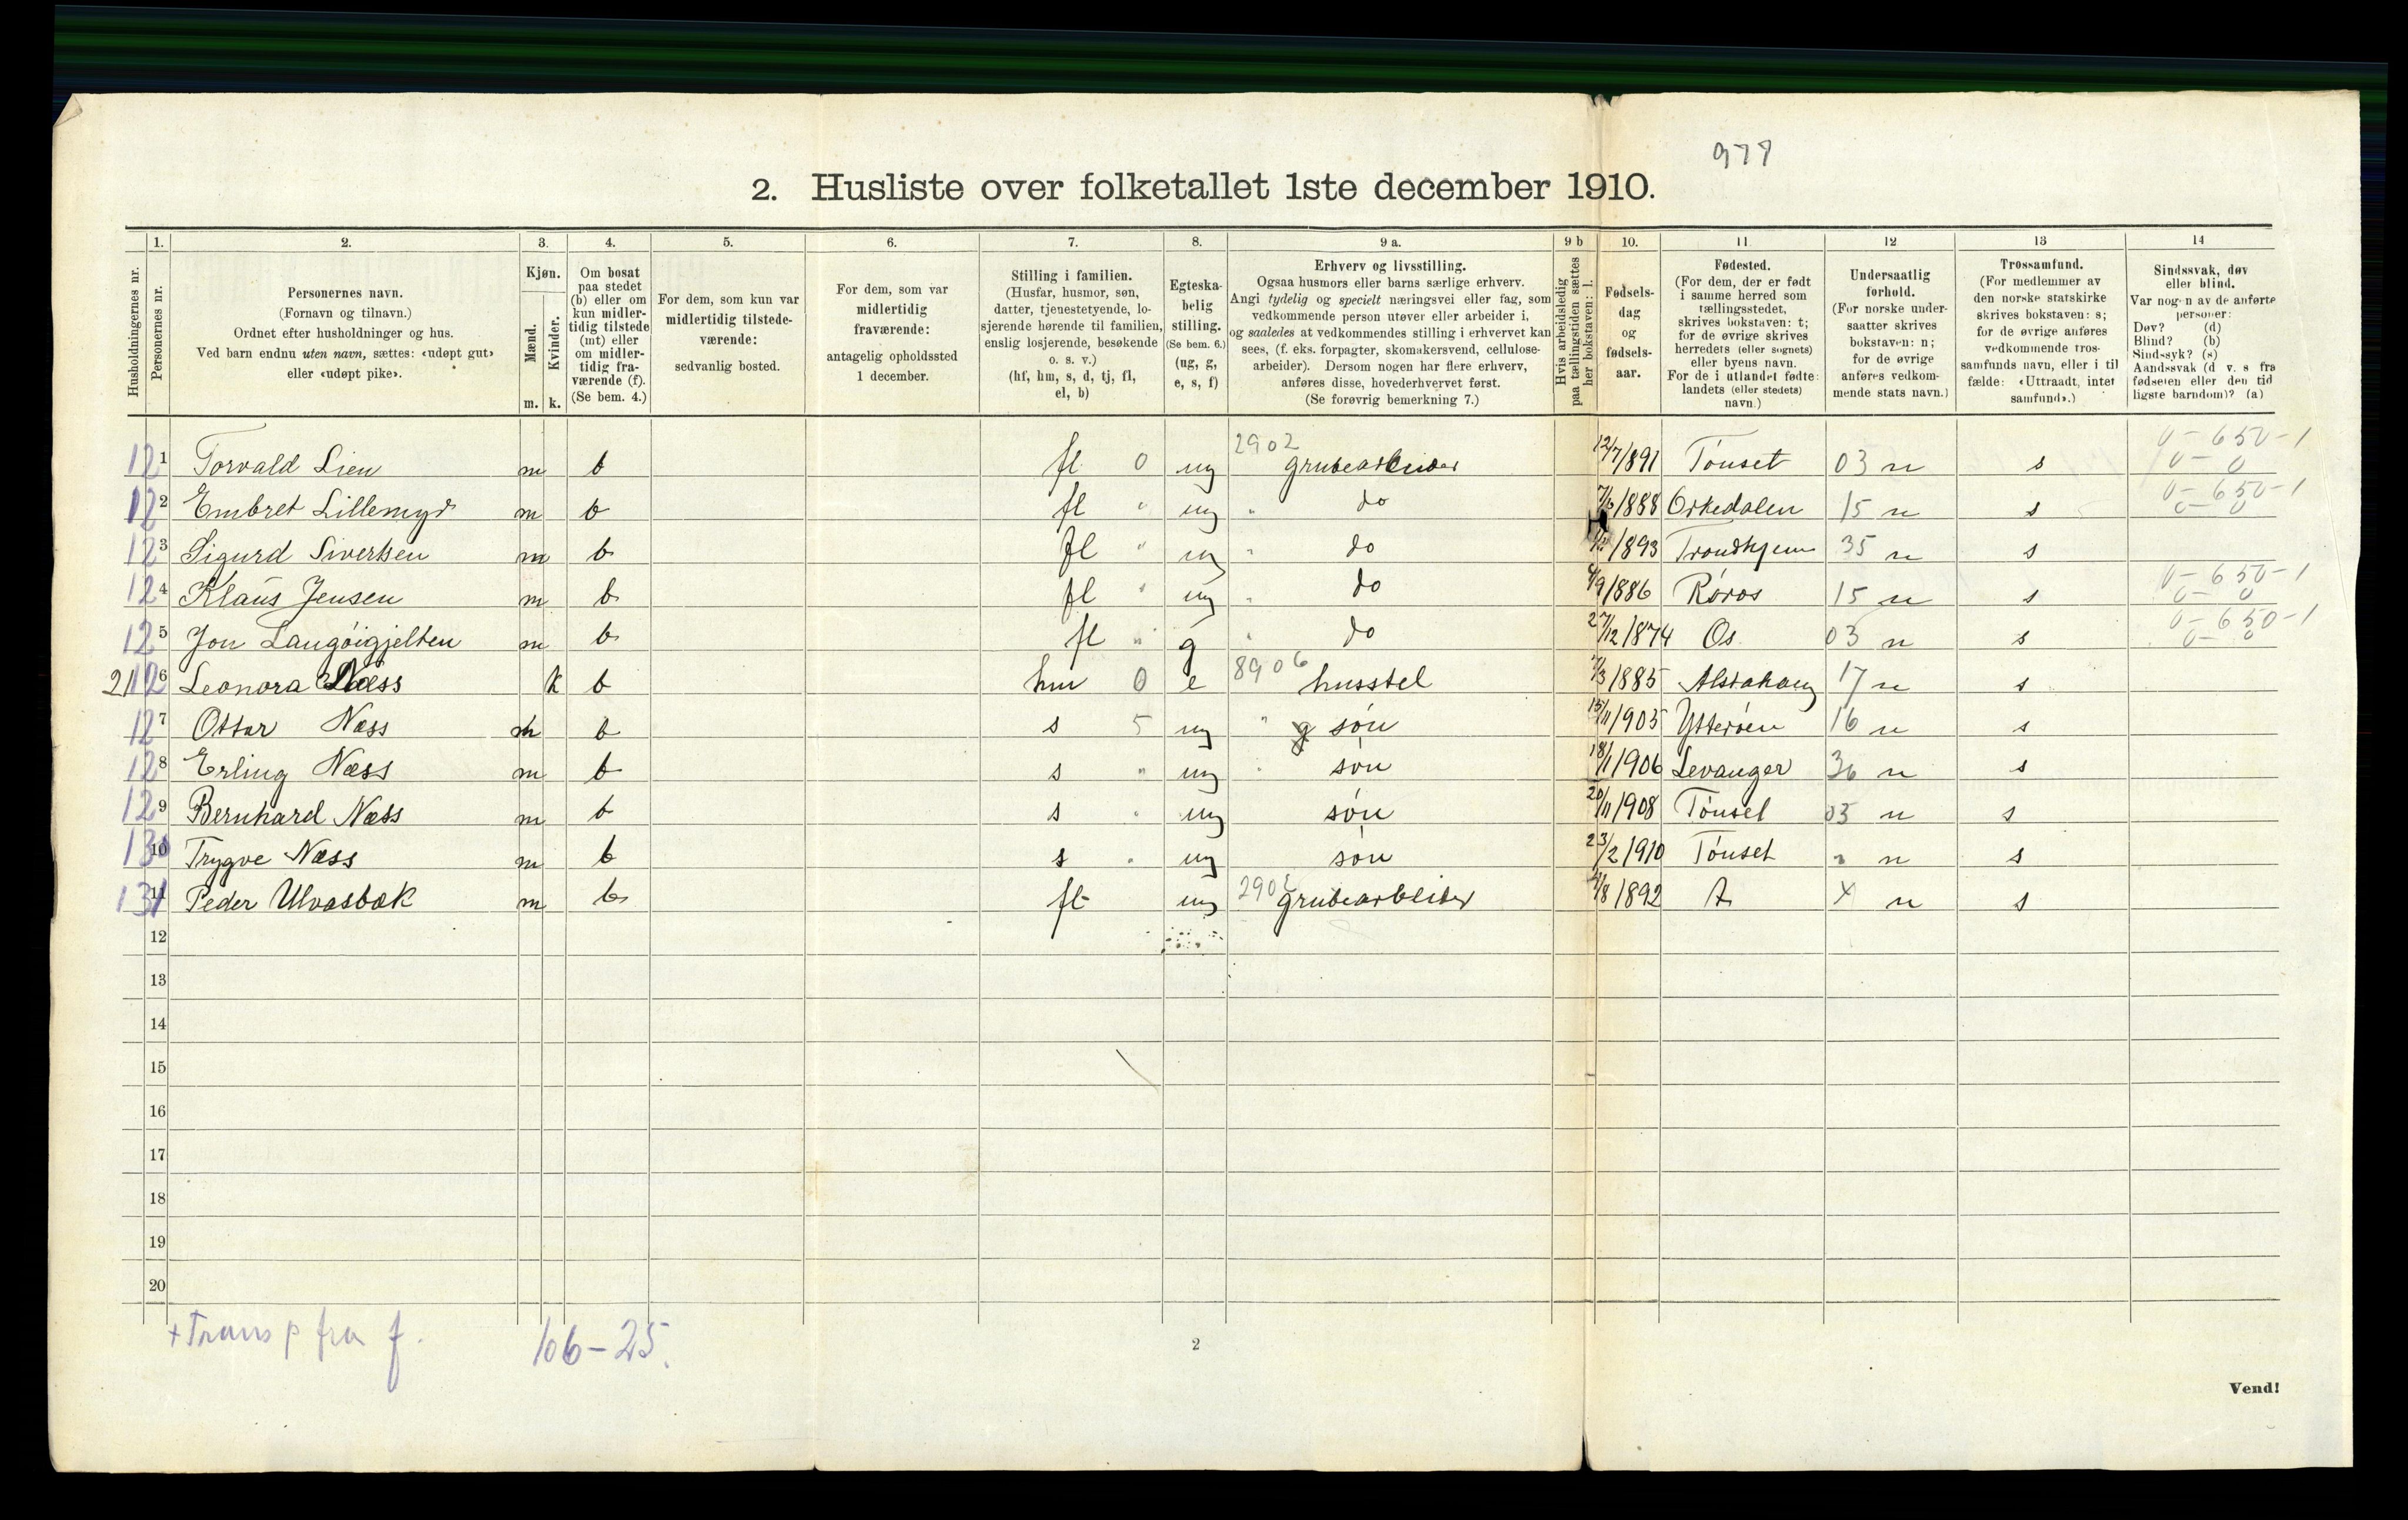 977
2. Husliste over folketallet 1ste december 1910.
1. 2. 3. 4. 5. 6. 7. 8. 9 a. 9 b 10. 11 12 13 14
Husholdningernes nr.
Personernes nr.
Personernes navn.
(Fornavn og tilnavn.)
Ordnet efter husholdninger og hus.
Ved barn endnu uten navn, sættes: «udøpt gut»
eller «udøpt pike».
Kjøn.
Mænd.
Kvinder.
m. k.
Om bosat
paa stedet
(b) eller om
kun midler-
tidig tilstede
(mt) eller
om midler-
tidig fra-
værende (f).
(Se bem. 4.)
For dem, som kun var
midlertidig tilstede-
værende:
sedvanlig bosted.
For dem, som var
midlertidig
fraværende:
antagelig opholdssted
1 december.
Stilling i familien.
(Husfar, husmor, søn,
datter, tjenestetyende, lo-
sjerende hørende til familien,
enslig losjerende, besøkende
o. s. v.)
(hf, hm, s, d, tj, fl,
el, b)
Egteska-
belig
stilling.
(Se bem. 6.)
(ug, g,
e, s, f)
Erhverv og livsstilling.
Ogsaa husmors eller barns særlige erhverv.
Angi tydelig og specielt næringsvei eller fag, som
vedkommende person utøver eller arbeider i,
og saaledes at vedkommendes stilling i erhvervet kan
sees, (f. eks. forpagter, skomakersvend, cellulose-
arbeider). Dersom nogen har flere erhverv,
anføres disse, hovederhvervet først.
(Se forøvrig bemerkning 7.)
Hvis arbeidsledig
paa tællingstiden sættes
her bokstaven: l.
Fødsels-
dag
og
fødsels-
aar.
Fødested.
(For dem, der er født
i samme herred som
tællingsstedet,
skrives bokstaven: t;
for de øvrige skrives
herredets (eller sognets)
eller byens navn.
For de i utlandet fødte:
landets (eller stedets)
navn.)
Undersaatlig
forhold.
(For norske under-
saatter skrives
bokstaven: n;
for de øvrige
anføres vedkom-
mende stats navn.)
Trossamfund.
(For medlemmer av
den norske statskirke
skrives bokstaven: s;
for de øvrige anføres
vedkommende tros-
samfunds navn, eller i til
fælde: «Uttraadt, intet
samfund».)
Sindssvak, døv
eller blind.
Var nogen av de anførte
personer:
Døv? (d)
Blind? (b)
Sindssyk? (s)
Aandssvak (d v. s fra
fødselen eller den tid
ligste barndom)? (a)
1 Torvald Lien m b fl 0 ug 2902 grubearbeider 12/7/891 Tönset 03 n s 0-650-1 0-0
2 Embret Lillemyr m b fl " ug " do 1888 Orkedalen 15 n s 0-650-1 0-0
3 Sigurd Sivertsen m b fl " ug " do 1893 Trondhjem 35 n s
4 Klaus Jensen m b fl " ug " do 1886 Röros 15 n s 0-650-1 0-0
5 Jon Langöigjelten m b fl " g " do 27/12/1874 Os 03 n s 0-650-1 0-0
6 Leonora Næss k b hm 0 e 8906 husstel 1885 Alstahaug 17 n s
7 Ottar Næss m b s 5 ug " sön 15/11/1905 Ytteröen 16 n s
8 Erling Næss m b s " ug " sön 18/11906 Levanger 36 n s
9 Bernhard Næss m b s " ug sön 20/11/1908 Tönset 03 n s
10 Trygve Næss m b s " ug sön 23/2 1910 Tönset " n s
11 Peder Ulvasbæk m b fl ug 2902 grubearbeider 1892 t x n s
12
13
14
15
16
17
18
19
20
+ Transp fra f. 106-25.
2
Vend!